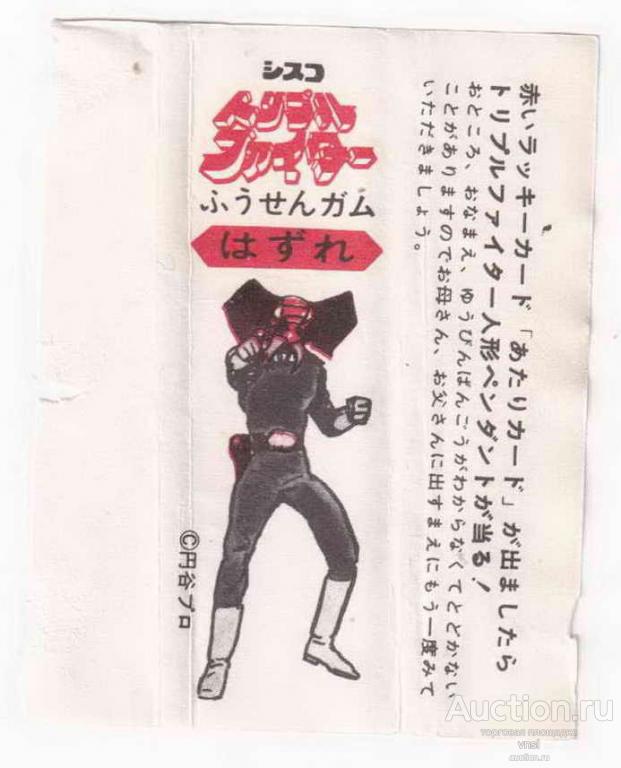 シスコ
トリプル
ファイター
ふうせんガム
はずれ
赤いラッキーカード「あたりカード」が出ましたら
トリプルファイター人形ペンダントが当る!
おところ、おなまえ、ゆうびんばんごうがわからなくてとどかない
ことがありますのでお母さん、お父さんに出すまえにもう一度みて
いただきましょう。
©円谷プロ
Auction.ru
торговая площадка
vnsl
auction.ru